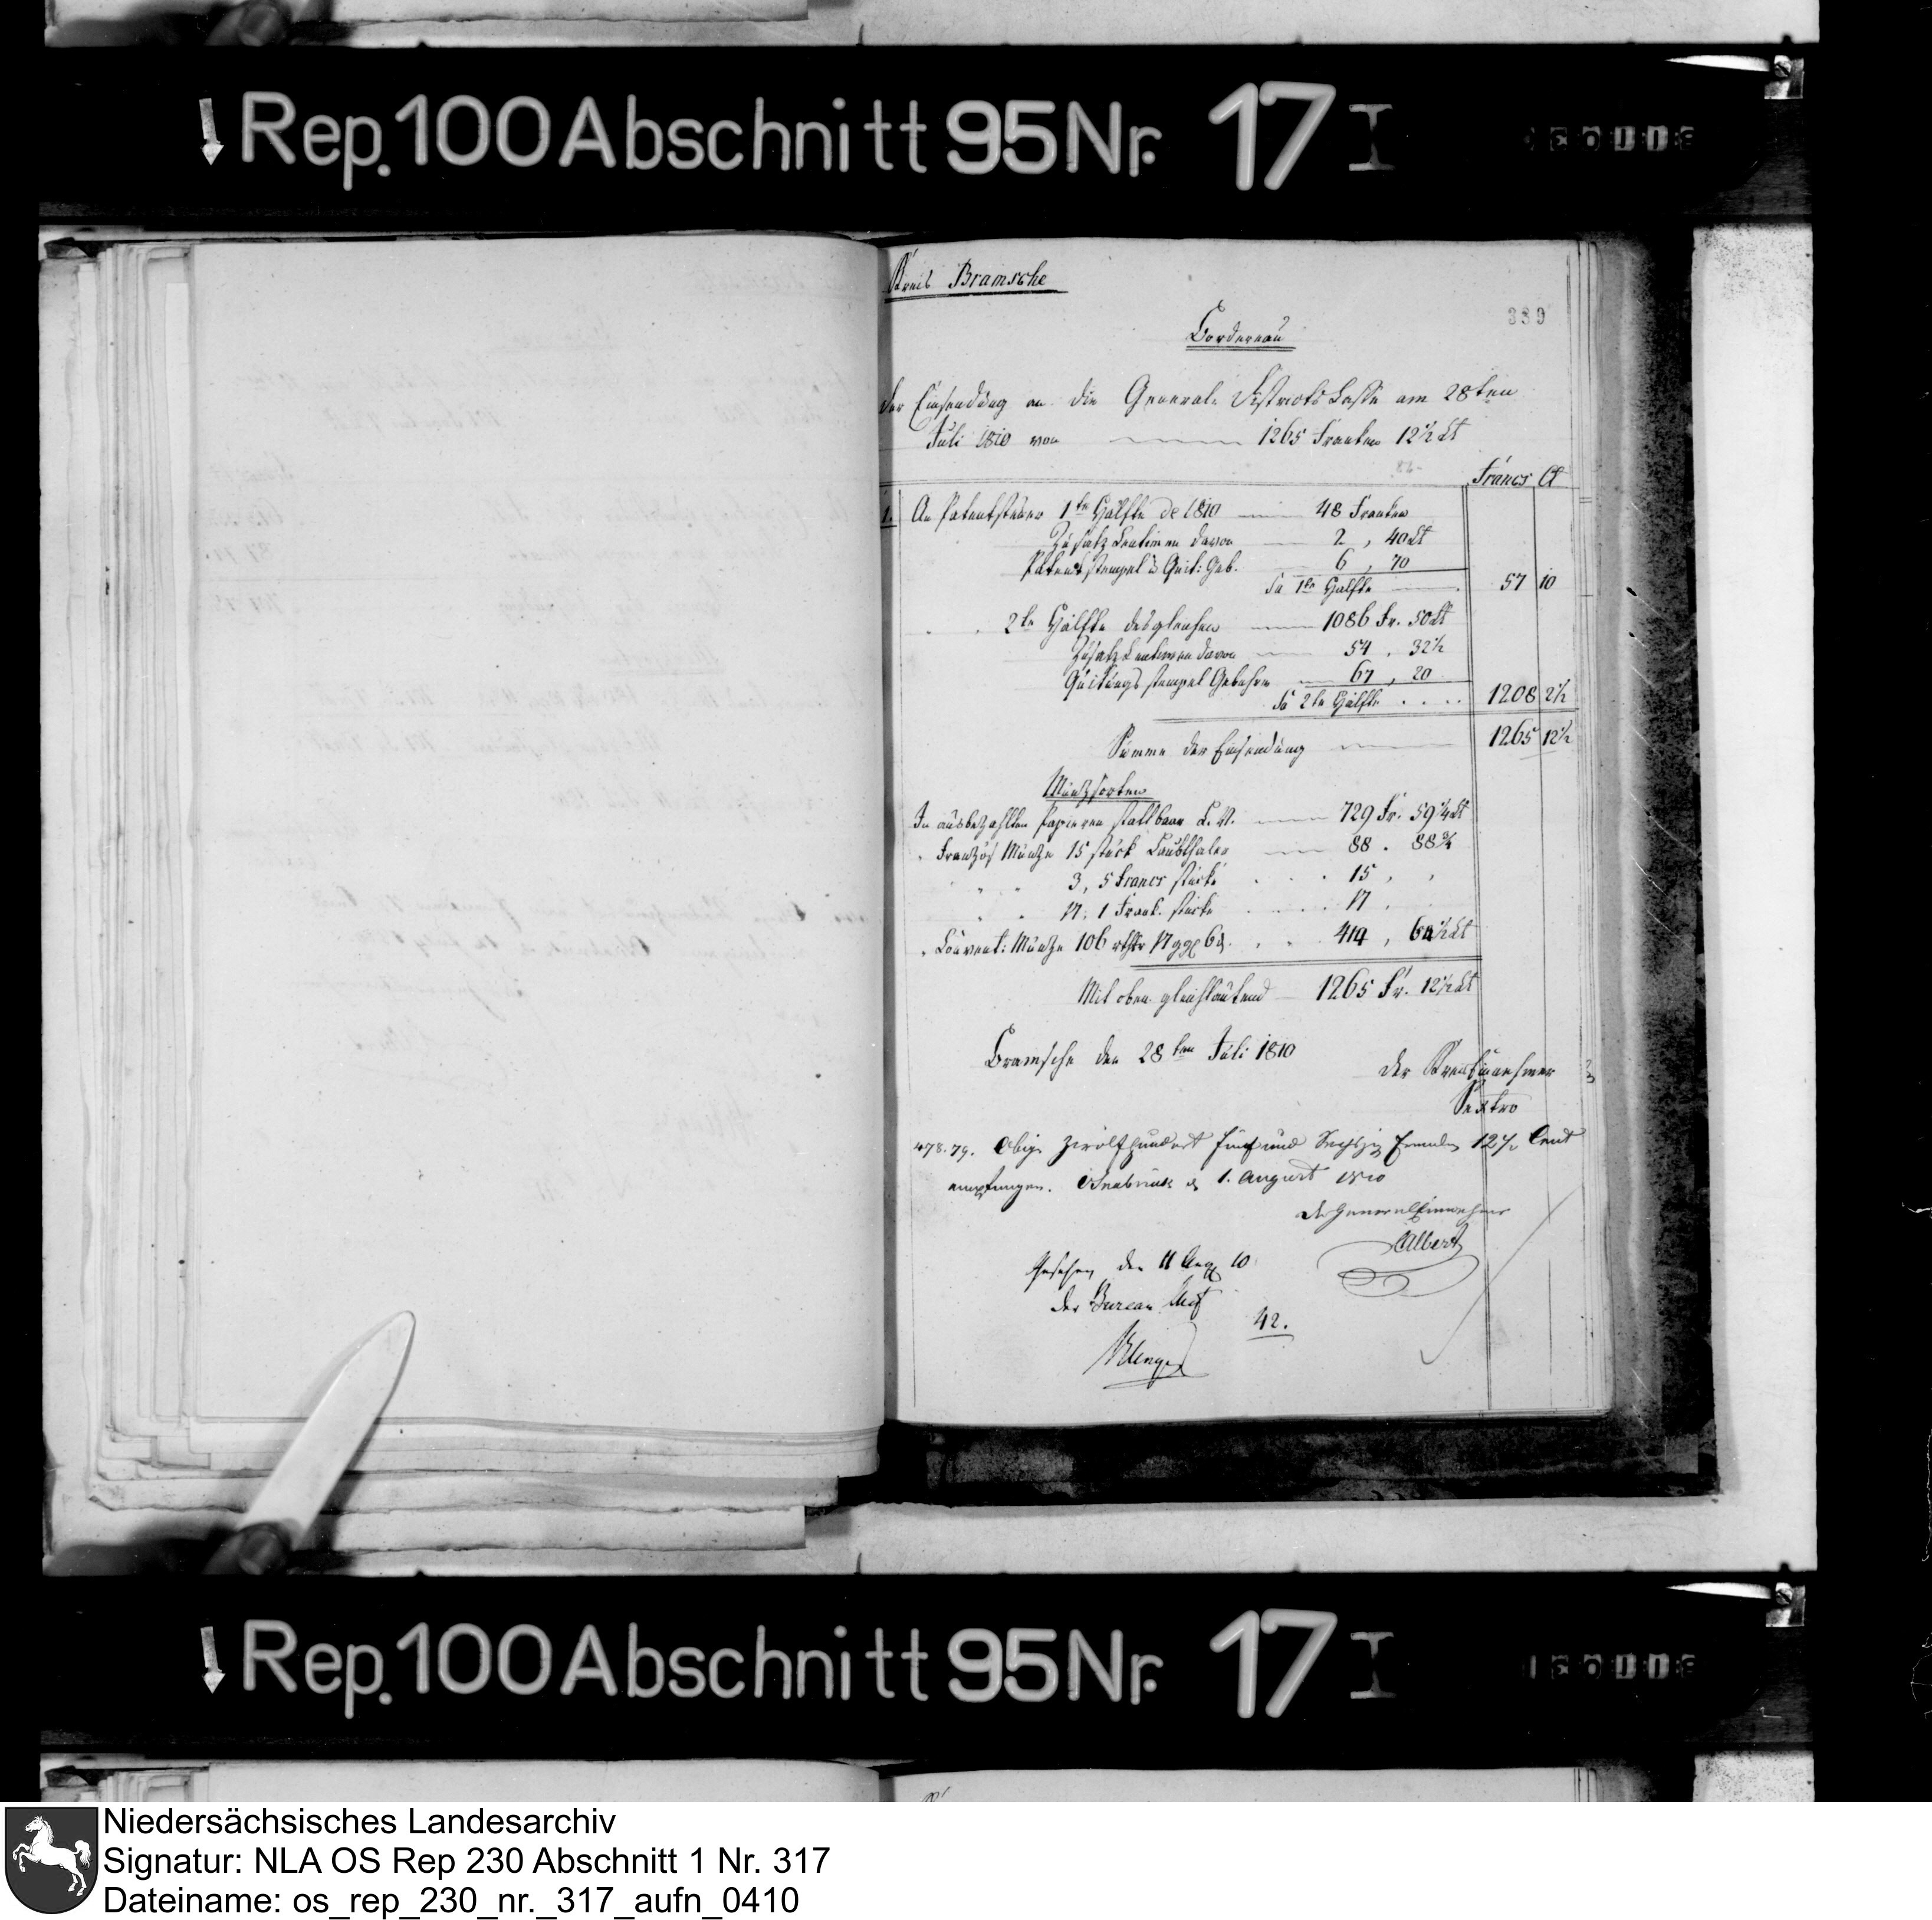 Rep. 100 Abschnitt 95 Nr. 17 I
Kreis Bramsche
389
Bordereau
der Einsendung an die General-Districts Casse am 28ten
Juli 1810 von 1265 Franken 12½ Ct
Francs Ct
1. An Patentsteuer 1te Hälfte de 1810 48 Franken
Zusatz Centimen davon 2 , 40 Ct
Patentstempel u Quit: Geb. 6 , 70
Sa 1te Hälfte 57 10
2te Hälfte desgleichen 1086 Fr. 50 Ct
Zusatz Centimen davon 54 . 32½
Quitungs stempel Gebühren 67 , 20
Sa 2te Hälfte . . . . 1208 2½
Summe der Einsendung 1265 12½
Münzsorten
In ausbezahlten Papieren statt baar C. M. 729 Fr. 59¼ Ct
" Französ Münze 15 stück Laubthaler 88 . 88¾
" " " 3, 5 Francs stücke . . . 15 , ,
" " 17, 1 Frank. stücke . . . . 17 .
" Convent: Münze 106 rthlr 17 ggl 6 d. . . 414 , 64½ Ct
Mit oben gleichlautend 1265 Fr. 12½ Ct
Bramsche den 28ten Juli 1810
Der Kreiseinnehmer
Sextro
478.79. Obige Zwölfhundert fünf und Sechszig Franken 12½ Cent
empfangen. Osnabrück d 1. August 1810
Der GeneralEinnehmer
Albert
Gesehen den 11 Aug 10
der Bureau Chef
42.
Rep. 100 Abschnitt 95 Nr. 17 I
Niedersächsisches Landesarchiv
Signatur: NLA OS Rep 230 Abschnitt 1 Nr. 317
Dateiname: os_rep_230_nr._317_aufn_0410